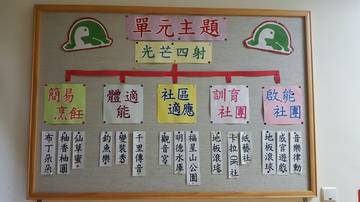 單元主題
光芒四射
簡易
烹飪
體適
能
社區
適應
訓育
社團
啟能
社團
仙草蜜
柚香柚圓
布丁朵朵
千里傳音
變裝秀
釣魚樂
福星山公園
明德水庫
觀音宮
紙藝社
卡拉OK社
地板滾球
音樂律動
感官遊戲
地板滾球